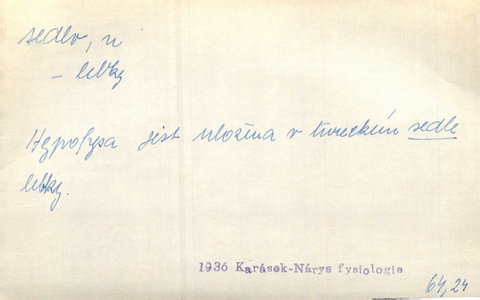 sedlo, n
– lebky
Hypofysa jest uložena v tureckém sedle
lebky.
1936 Karásek-Nárys fysiologie
64,24